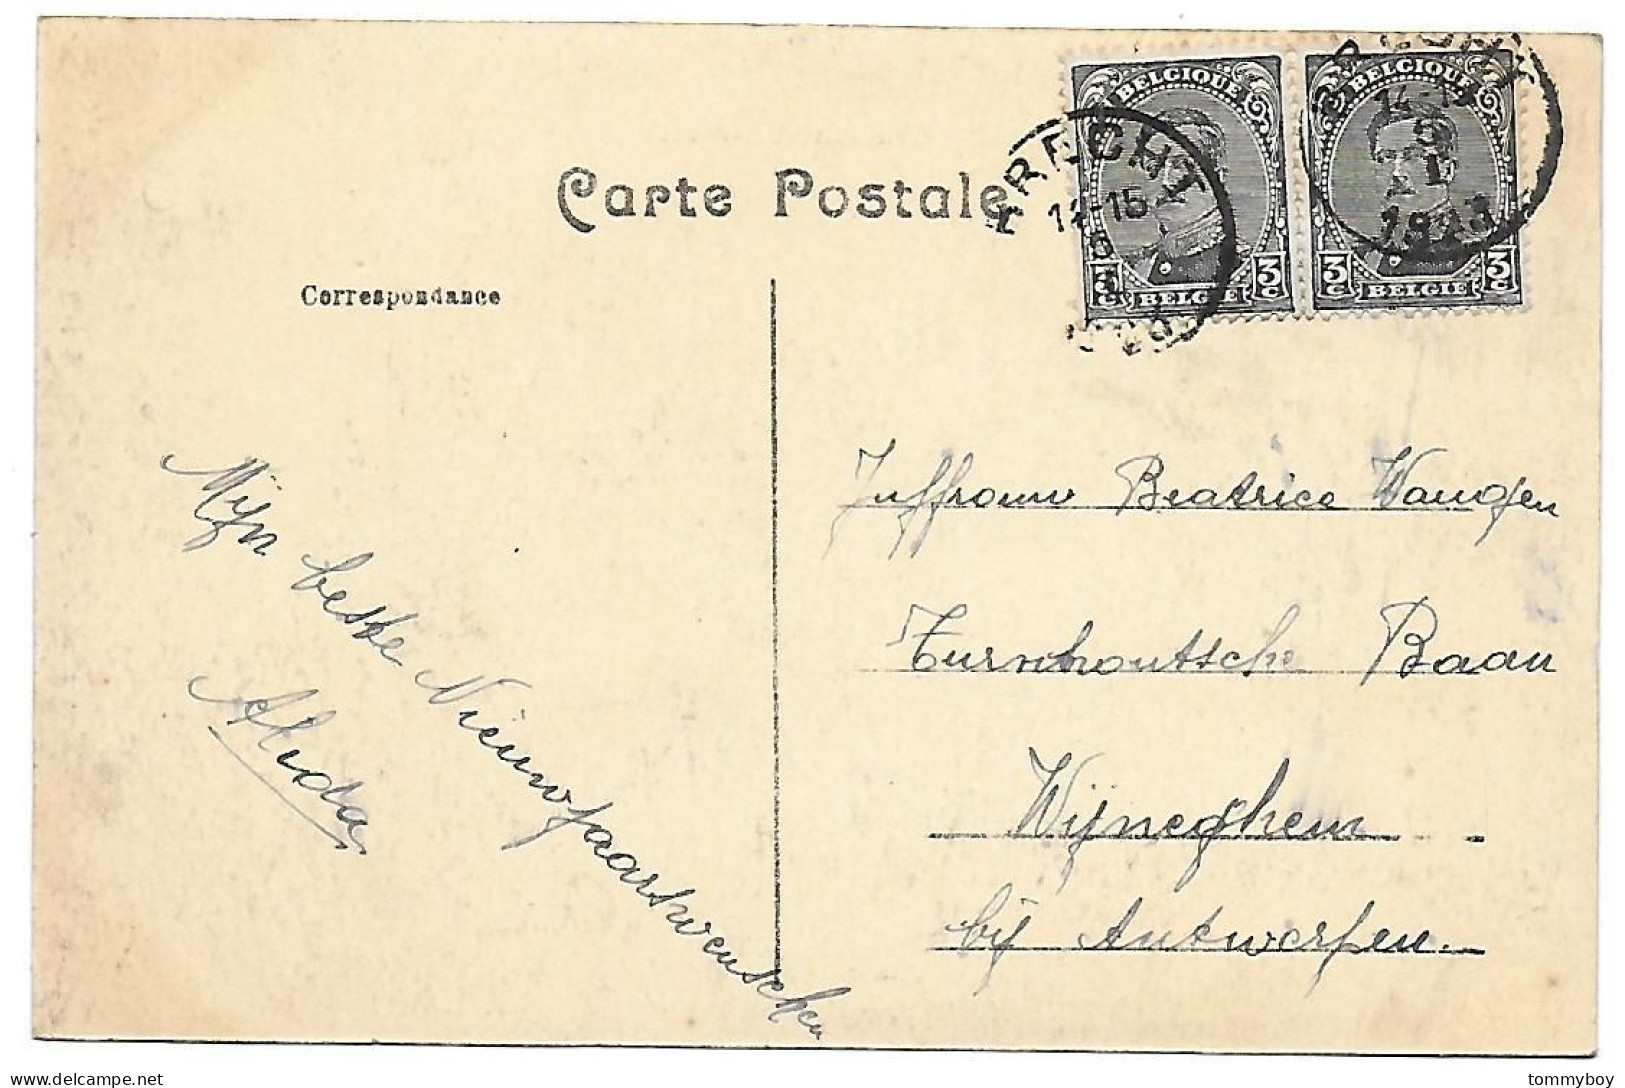 Carte Postale
Correspondance
BELGIQUE
3 C 3 C
BELGIË
BELGIQUE
3 C 3 C
BELGIE
BRECHT
14-15
BRECHT
14-15
5
I
1923
Mijn beste Nieuwjaarswenschen
Alida
Juffrouw Beatrice
Turnhoutsche Baan
Wijneghem
bij Antwerpen.
delcampe.net
tommyboy